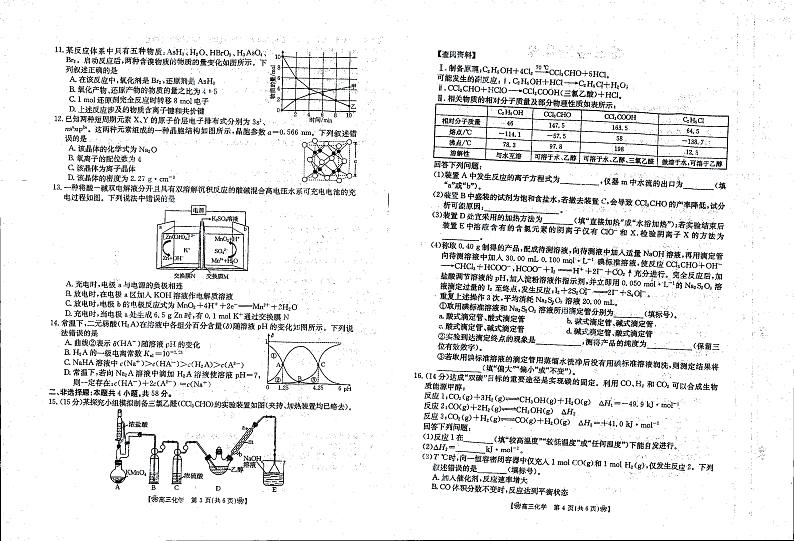 11. 某反应体系中只有五种物质：AsH₃、H₂O、HBrO₃、H₃AsO₄、
Br₂。启动反应后，两种含溴物质的物质的量变化如图所示。下
列叙述正确的是
A. 在该反应中，氧化剂是Br₂，还原剂是AsH₃
B. 氧化产物、还原产物的物质的量之比为4：5
C. 1 mol还原剂完全反应时转移8 mol电子
D. 上述反应涉及的物质含离子键和共价键
12. 已知两种短周期元素X、Y的原子价层电子排布式分别为3s¹、
nsⁿnpⁿ。这两种元素组成的一种晶胞结构如图所示，晶胞参数a=0.566 nm。下列叙述错
误的是
A. 该晶体的化学式为Na₂O
B. 氧离子的配位数为4
C. 该晶体为离子晶体
D. 该晶体的密度为2.27 g·cm⁻³
13. 一种将酸—碱双电解液分开且具有双溶解沉积反应的酸碱混合高电压水系可充电电池的充
电过程如图。下列说法中错误的是
电源
K₂SO₄溶液
交换膜N 交换膜M
A. 充电时，电极a与电源的负极相连
B. 放电时，在电极a区加入KOH溶液作电解质溶液
C. 放电时，电极b的电极反应式为MnO₂+4H⁺+2e⁻══Mn²⁺+2H₂O
D. 充电时，当电极a处生成6.5 g Zn时，有0.1 mol K⁺通过交换膜N
14. 常温下，二元弱酸(H₂A)在溶液中各组分百分含量(δ)随溶液pH的变化如图所示。下列说
法错误的是
A. 曲线②表示δ(HA⁻)随溶液pH的变化
B. H₂A的一级电离常数
C. NaHA溶液中c(Na⁺)>c(HA⁻)>c(H₂A)>c(A²⁻)
D. 常温下，若向Na₂A溶液中滴加H₂A溶液使溶液pH=7，
则一定存在：c(HA⁻)+2c(A²⁻)=c(Na⁺)
二、非选择题：本题共4小题，共58分。
15. (15分)某探究小组模拟制备三氯乙醛(CCl₃CHO)的实验装置如图(夹持、加热装置均已略去)。
浓盐酸
KMnO₄
浓硫酸
乙醇
NaOH
溶液
A B C D E
高三化学 第3页(共6页)
【查阅资料】
Ⅰ. 制备原理：C₂H₅OH+4Cl₂ 70℃ CCl₃CHO+5HCl。
可能发生的副反应：ⅰ. C₂H₅OH+HCl⟶C₂H₅Cl+H₂O；
ⅱ. CCl₃CHO+HClO⟶CCl₃COOH(三氯乙酸)+HCl。
Ⅱ. 相关物质的相对分子质量及部分物理性质如表所示：
C₂H₅OH CCl₃CHO CCl₃COOH C₂H₅Cl
相对分子质量 46 147.5 163.5 64.5
熔点/℃ −114.1 −57.5 58 −138.7
沸点/℃ 78.3 97.8 198 12.3
溶解性 与水互溶 可溶于水、乙醇 可溶于水、乙醇、三氯乙醛 微溶于水，可溶于乙醇
回答下列问题：
(1)装置A中发生反应的离子方程式为________，仪器m中水流的出口为________(填
“a”或“b”)。
(2)装置B中盛装的试剂为饱和食盐水，若撤去装置C，会导致CCl₃CHO的产率降低，试分
析可能原因：________。
(3)装置D处宜采用的加热方法为________(填“直接加热”或“水浴加热”)；若实验结束后
装置E中溶应含有的含氯元素的阴离子仅有ClO⁻和X，检验阴离子X的方法为
________。
(4)称取0.40 g制得的产品，配成待测溶液，向待测溶液中加入适量NaOH溶液，再用滴定管
向待测溶液中加入30.00 mL 0.100 mol·L⁻¹碘标准溶液，使反应CCl₃CHO+OH⁻
⟶CHCl₃+HCOO⁻、HCOO⁻+I₂══H⁺+2I⁻+CO₂↑充分进行。完全反应后，加
盐酸调节溶液的pH，加入淀粉溶液作指示剂，并立即用0.050 mol·L⁻¹的Na₂S₂O₃溶
液滴定过量的I₂至终点，发生反应：I₂+2S₂O₃²⁻══2I⁻+S₄O₆²⁻。
重复上述操作3次，平均消耗Na₂S₂O₃溶液20.00 mL。
①取用碘标准溶液和Na₂S₂O₃溶液所用滴定管分别为________(填标号)。
a. 酸式滴定管、酸式滴定管 b. 碱式滴定管、碱式滴定管
c. 酸式滴定管、碱式滴定管 d. 碱式滴定管、酸式滴定管
②实验到达滴定终点的现象是________，测得产品的纯度为________(保留三
位有效数字)。
③若取用碘标准溶液的滴定管用蒸馏水洗净后没有用碘标准溶液润洗，则测定结果将
________(填“偏大”“偏小”或“不变”)。
16. (14分)达成“双碳”目标的重要途径是实现碳的固定。利用CO、H₂和CO₂可以合成生物
质能源甲醇：
反应1：CO₂(g)+3H₂(g)⇌CH₃OH(g)+H₂O(g) ΔH₁=−49.9 kJ·mol⁻¹
反应2：CO(g)+2H₂(g)⇌CH₃OH(g) ΔH₂
反应3：CO₂(g)+H₂(g)⇌CO(g)+H₂O(g) ΔH₃=+41.0 kJ·mol⁻¹
回答下列问题：
(1)反应1在________(填“较高温度”“较低温度”或“任何温度”)下能自发进行。
(2)ΔH₂=________kJ·mol⁻¹。
(3)T℃时，向一恒容密闭容器中仅充入1 mol CO(g)和1 mol H₂(g)，仅发生反应2。下列
叙述错误的是________(填标号)。
A. 加入催化剂，反应速率增大
B. CO体积分数不变时，反应达到平衡状态
高三化学 第4页(共6页)